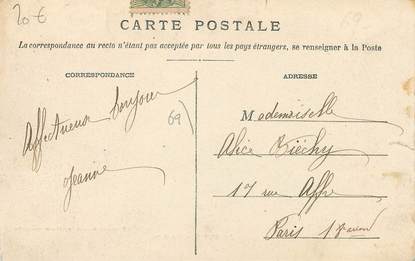 20 €
CARTE POSTALE
La correspondance au recto n'étant pas acceptée par tous les pays étrangers, se renseigner à la Poste
CORRESPONDANCE
Affectueux bonjour
Jeanne
69
ADRESSE
Mademoiselle
Alice
17 rue Affre
Paris